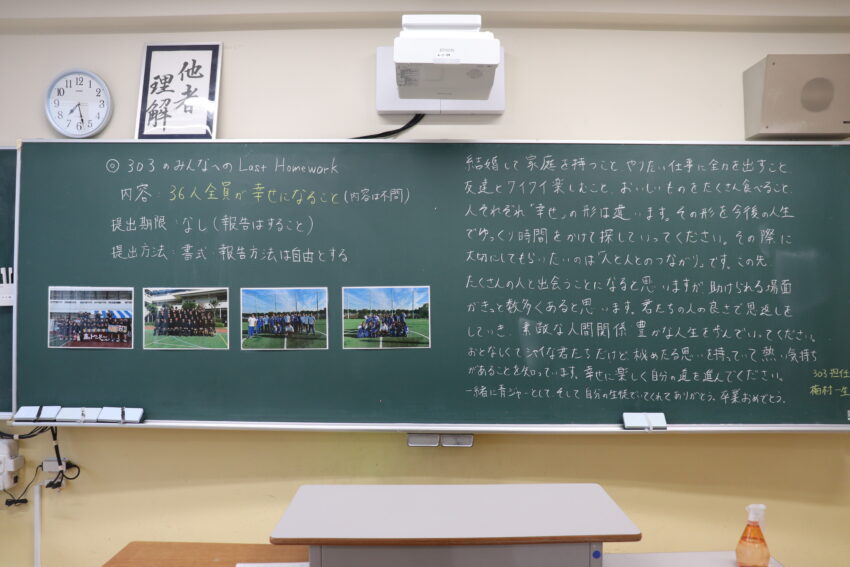 他者
理解
EPSON
◎303のみんなへのLast Homework
内容:36人全員が幸せになること(内容は不問)
提出期限:なし(報告はすること)
提出方法:書式・報告方法は自由とする
結婚して家庭を持つこと、やりたい仕事に全力を出すこと
友達とワイワイ楽しむこと、おいしいものをたくさん食べること、
人それぞれ「幸せ」の形は違います。その形を今後の人生
でゆっくり時間をかけて探していってください。その際に
大切にしてもらいたいのは「人と人とのつながり」です。この先
たくさんの人と出会うことになると思いますが、助けられる場面
がきっと数多くあると思います。君たちの人の良さで恩返しを
していき、素敵な人間関係、豊かな人生を歩んでいってください。
おとなしくてシャイな君たちだけど、秘めたる思いを持っていて熱い気持ち
があることを知っています。幸せに楽しく自分の道を進んでください。
一緒に青ジャーとして、そして自分の生徒でいてくれてありがとう。卒業おめでとう。
303担任
梅村一生